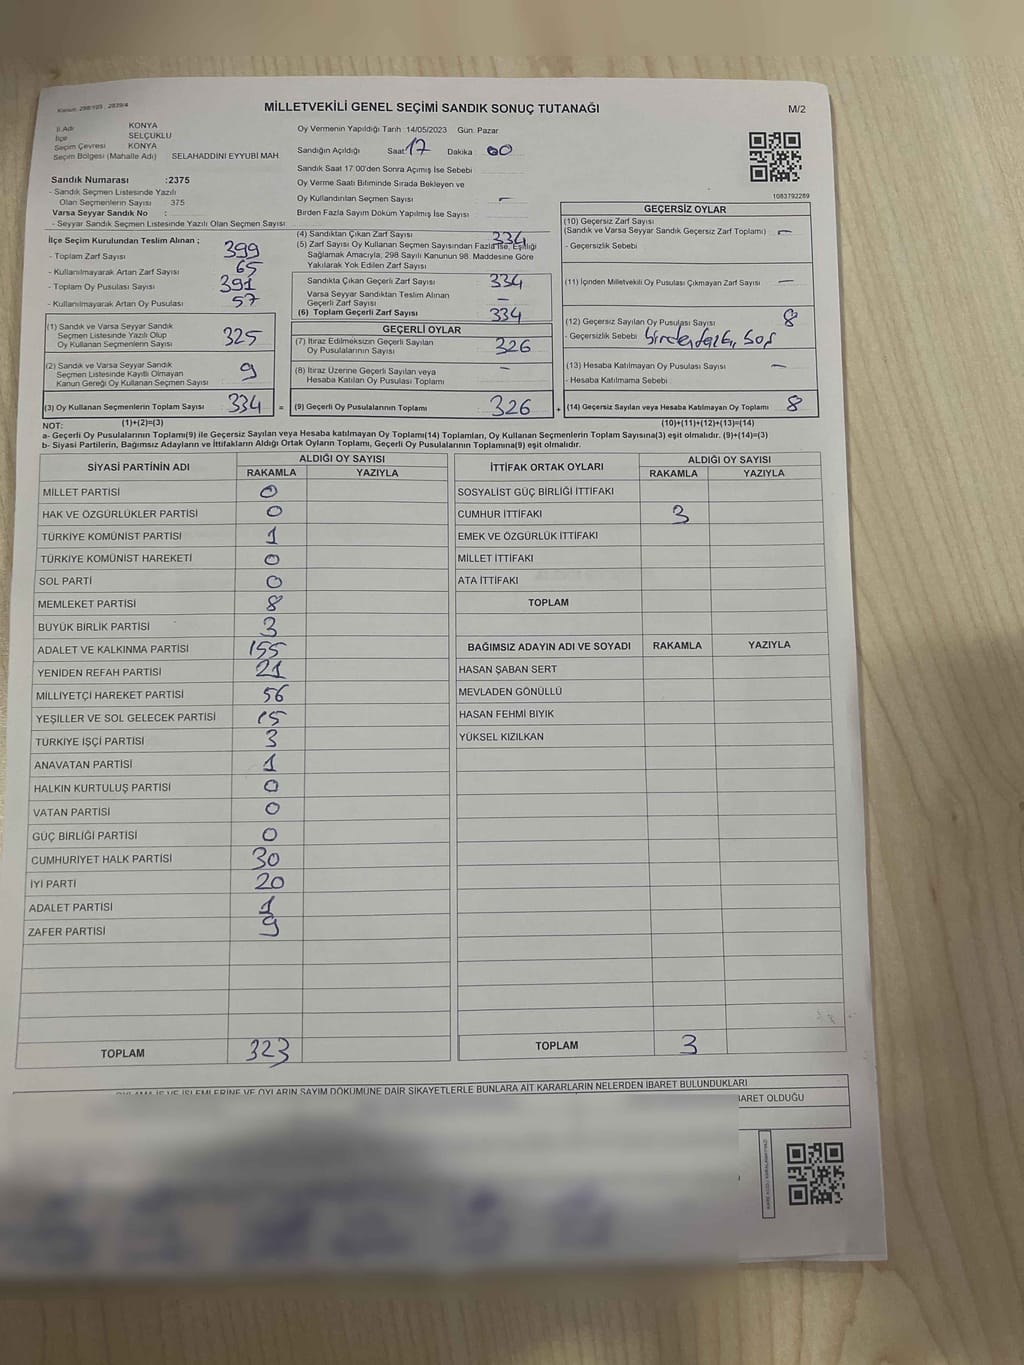 Kanun: 298/105 , 2839/4
MİLLETVEKİLİ GENEL SEÇİMİ SANDIK SONUÇ TUTANAĞI
M/2
İl Adı KONYA
İlçe SELÇUKLU
Seçim Çevresi KONYA
Seçim Bölgesi (Mahalle Adı) SELAHADDİNİ EYYUBİ MAH.
Oy Vermenin Yapıldığı Tarih :14/05/2023 Gün: Pazar
Sandığın Açıldığı Saat 17 Dakika 00
Sandık Saat 17:00'den Sonra Açımış İse Sebebi
Oy Verme Saati Bitiminde Sırada Bekleyen ve
Oy Kullandırılan Seçmen Sayısı : –
Birden Fazla Sayım Döküm Yapılmış İse Sayısı
1083792289
Sandık Numarası :2375
- Sandık Seçmen Listesinde Yazılı
Olan Seçmenlerin Sayısı : 375
Varsa Seyyar Sandık No :
- Seyyar Sandık Seçmen Listesinde Yazılı Olan Seçmen Sayısı
İlçe Seçim Kurulundan Teslim Alınan ;
- Toplam Zarf Sayısı 399
- Kullanılmayarak Artan Zarf Sayısı 65
- Toplam Oy Pusulası Sayısı 391
- Kullanılmayarak Artan Oy Pusulası 57
(1) Sandık ve Varsa Seyyar Sandık
Seçmen Listesinde Yazılı Olup
Oy Kullanan Seçmenlerin Sayısı 325
(2) Sandık ve Varsa Seyyar Sandık
Seçmen Listesinde Kayıtlı Olmayan
Kanun Gereği Oy Kullanan Seçmen Sayısı 9
(3) Oy Kullanan Seçmenlerin Toplam Sayısı 334 =
(1)+(2)=(3)
(4) Sandıktan Çıkan Zarf Sayısı 334
(5) Zarf Sayısı Oy Kullanan Seçmen Sayısından Fazla İse, Eşitliği
Sağlamak Amacıyla, 298 Sayılı Kanunun 98. Maddesine Göre
Yakılarak Yok Edilen Zarf Sayısı
Sandıkta Çıkan Geçerli Zarf Sayısı 334
Varsa Seyyar Sandıktan Teslim Alınan
Geçerli Zarf Sayısı –
(6) Toplam Geçerli Zarf Sayısı 334
GEÇERLİ OYLAR
(7) İtiraz Edilmeksizin Geçerli Sayılan
Oy Pusulalarının Sayısı 326
(8) İtiraz Üzerine Geçerli Sayılan veya
Hesaba Katılan Oy Pusulası Toplamı –
(9) Geçerli Oy Pusulalarının Toplamı : 326 +
GEÇERSİZ OYLAR
(10) Geçersiz Zarf Sayısı
(Sandık ve Varsa Seyyar Sandık Geçersiz Zarf Toplamı) : –
- Geçersizlik Sebebi
(11) İçinden Milletvekili Oy Pusulası Çıkmayan Zarf Sayısı : –
(12) Geçersiz Sayılan Oy Pusulası Sayısı 8
- Geçersizlik Sebebi birden fazla, boş
(13) Hesaba Katılmayan Oy Pusulası Sayısı –
- Hesaba Katılmama Sebebi
(14) Geçersiz Sayılan veya Hesaba Katılmayan Oy Toplamı 8
(10)+(11)+(12)+(13)=(14)
NOT:
a- Geçerli Oy Pusulalarının Toplamı(9) ile Geçersiz Sayılan veya Hesaba katılmayan Oy Toplamı(14) Toplamları, Oy Kullanan Seçmenlerin Toplam Sayısına(3) eşit olmalıdır. (9)+(14)=(3)
b- Siyasi Partilerin, Bağımsız Adayların ve İttifakların Aldığı Ortak Oyların Toplamı, Geçerli Oy Pusulalarının Toplamına(9) eşit olmalıdır.
SİYASİ PARTİNİN ADI ALDIĞI OY SAYISI
RAKAMLA YAZIYLA
MİLLET PARTİSİ 0
HAK VE ÖZGÜRLÜKLER PARTİSİ 0
TÜRKİYE KOMÜNİST PARTİSİ 1
TÜRKİYE KOMÜNİST HAREKETİ 0
SOL PARTİ 0
MEMLEKET PARTİSİ 8
BÜYÜK BİRLİK PARTİSİ 3
ADALET VE KALKINMA PARTİSİ 155
YENİDEN REFAH PARTİSİ 21
MİLLİYETÇİ HAREKET PARTİSİ 56
YEŞİLLER VE SOL GELECEK PARTİSİ 15
TÜRKİYE İŞÇİ PARTİSİ 3
ANAVATAN PARTİSİ 1
HALKIN KURTULUŞ PARTİSİ 0
VATAN PARTİSİ 0
GÜÇ BİRLİĞİ PARTİSİ 0
CUMHURİYET HALK PARTİSİ 30
İYİ PARTİ 20
ADALET PARTİSİ 1
ZAFER PARTİSİ 9
TOPLAM 323
İTTİFAK ORTAK OYLARI ALDIĞI OY SAYISI
RAKAMLA YAZIYLA
SOSYALİST GÜÇ BİRLİĞİ İTTİFAKI
CUMHUR İTTİFAKI 3
EMEK VE ÖZGÜRLÜK İTTİFAKI
MİLLET İTTİFAKI
ATA İTTİFAKI
TOPLAM
BAĞIMSIZ ADAYIN ADI VE SOYADI RAKAMLA YAZIYLA
HASAN ŞABAN SERT
MEVLADEN GÖNÜLLÜ
HASAN FEHMİ BIYIK
YÜKSEL KIZILKAN
TOPLAM 3
İŞLEMLERİNE VE OYLARIN SAYIM DÖKÜMÜNE DAİR ŞİKAYETLERLE BUNLARA AİT KARARLARIN NELERDEN İBARET BULUNDUKLARI
İBARET OLDUĞU